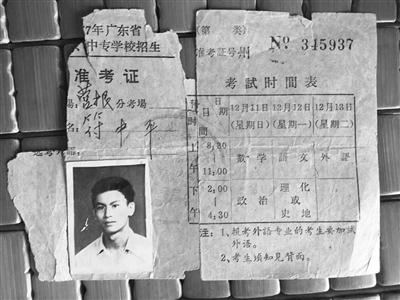 7年广东省
中专学校招生
准考证
分考场
名:
(第 类)
准考证号州 № 345937
考試时間表
日期 12月11日 12月12日 12月13日
时間 (星期日) (星期一) (星期二)
上午 8.30 11.00 数学 語文 外語
下午 2.00 4.30 政治 理化或史地
注:1、报考外语专业的考生要加试
外语。
2、考生须知見背面。